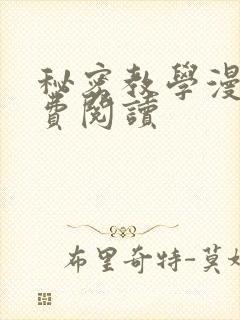 秘密教學漫
費閱讀
布里奇特-莫